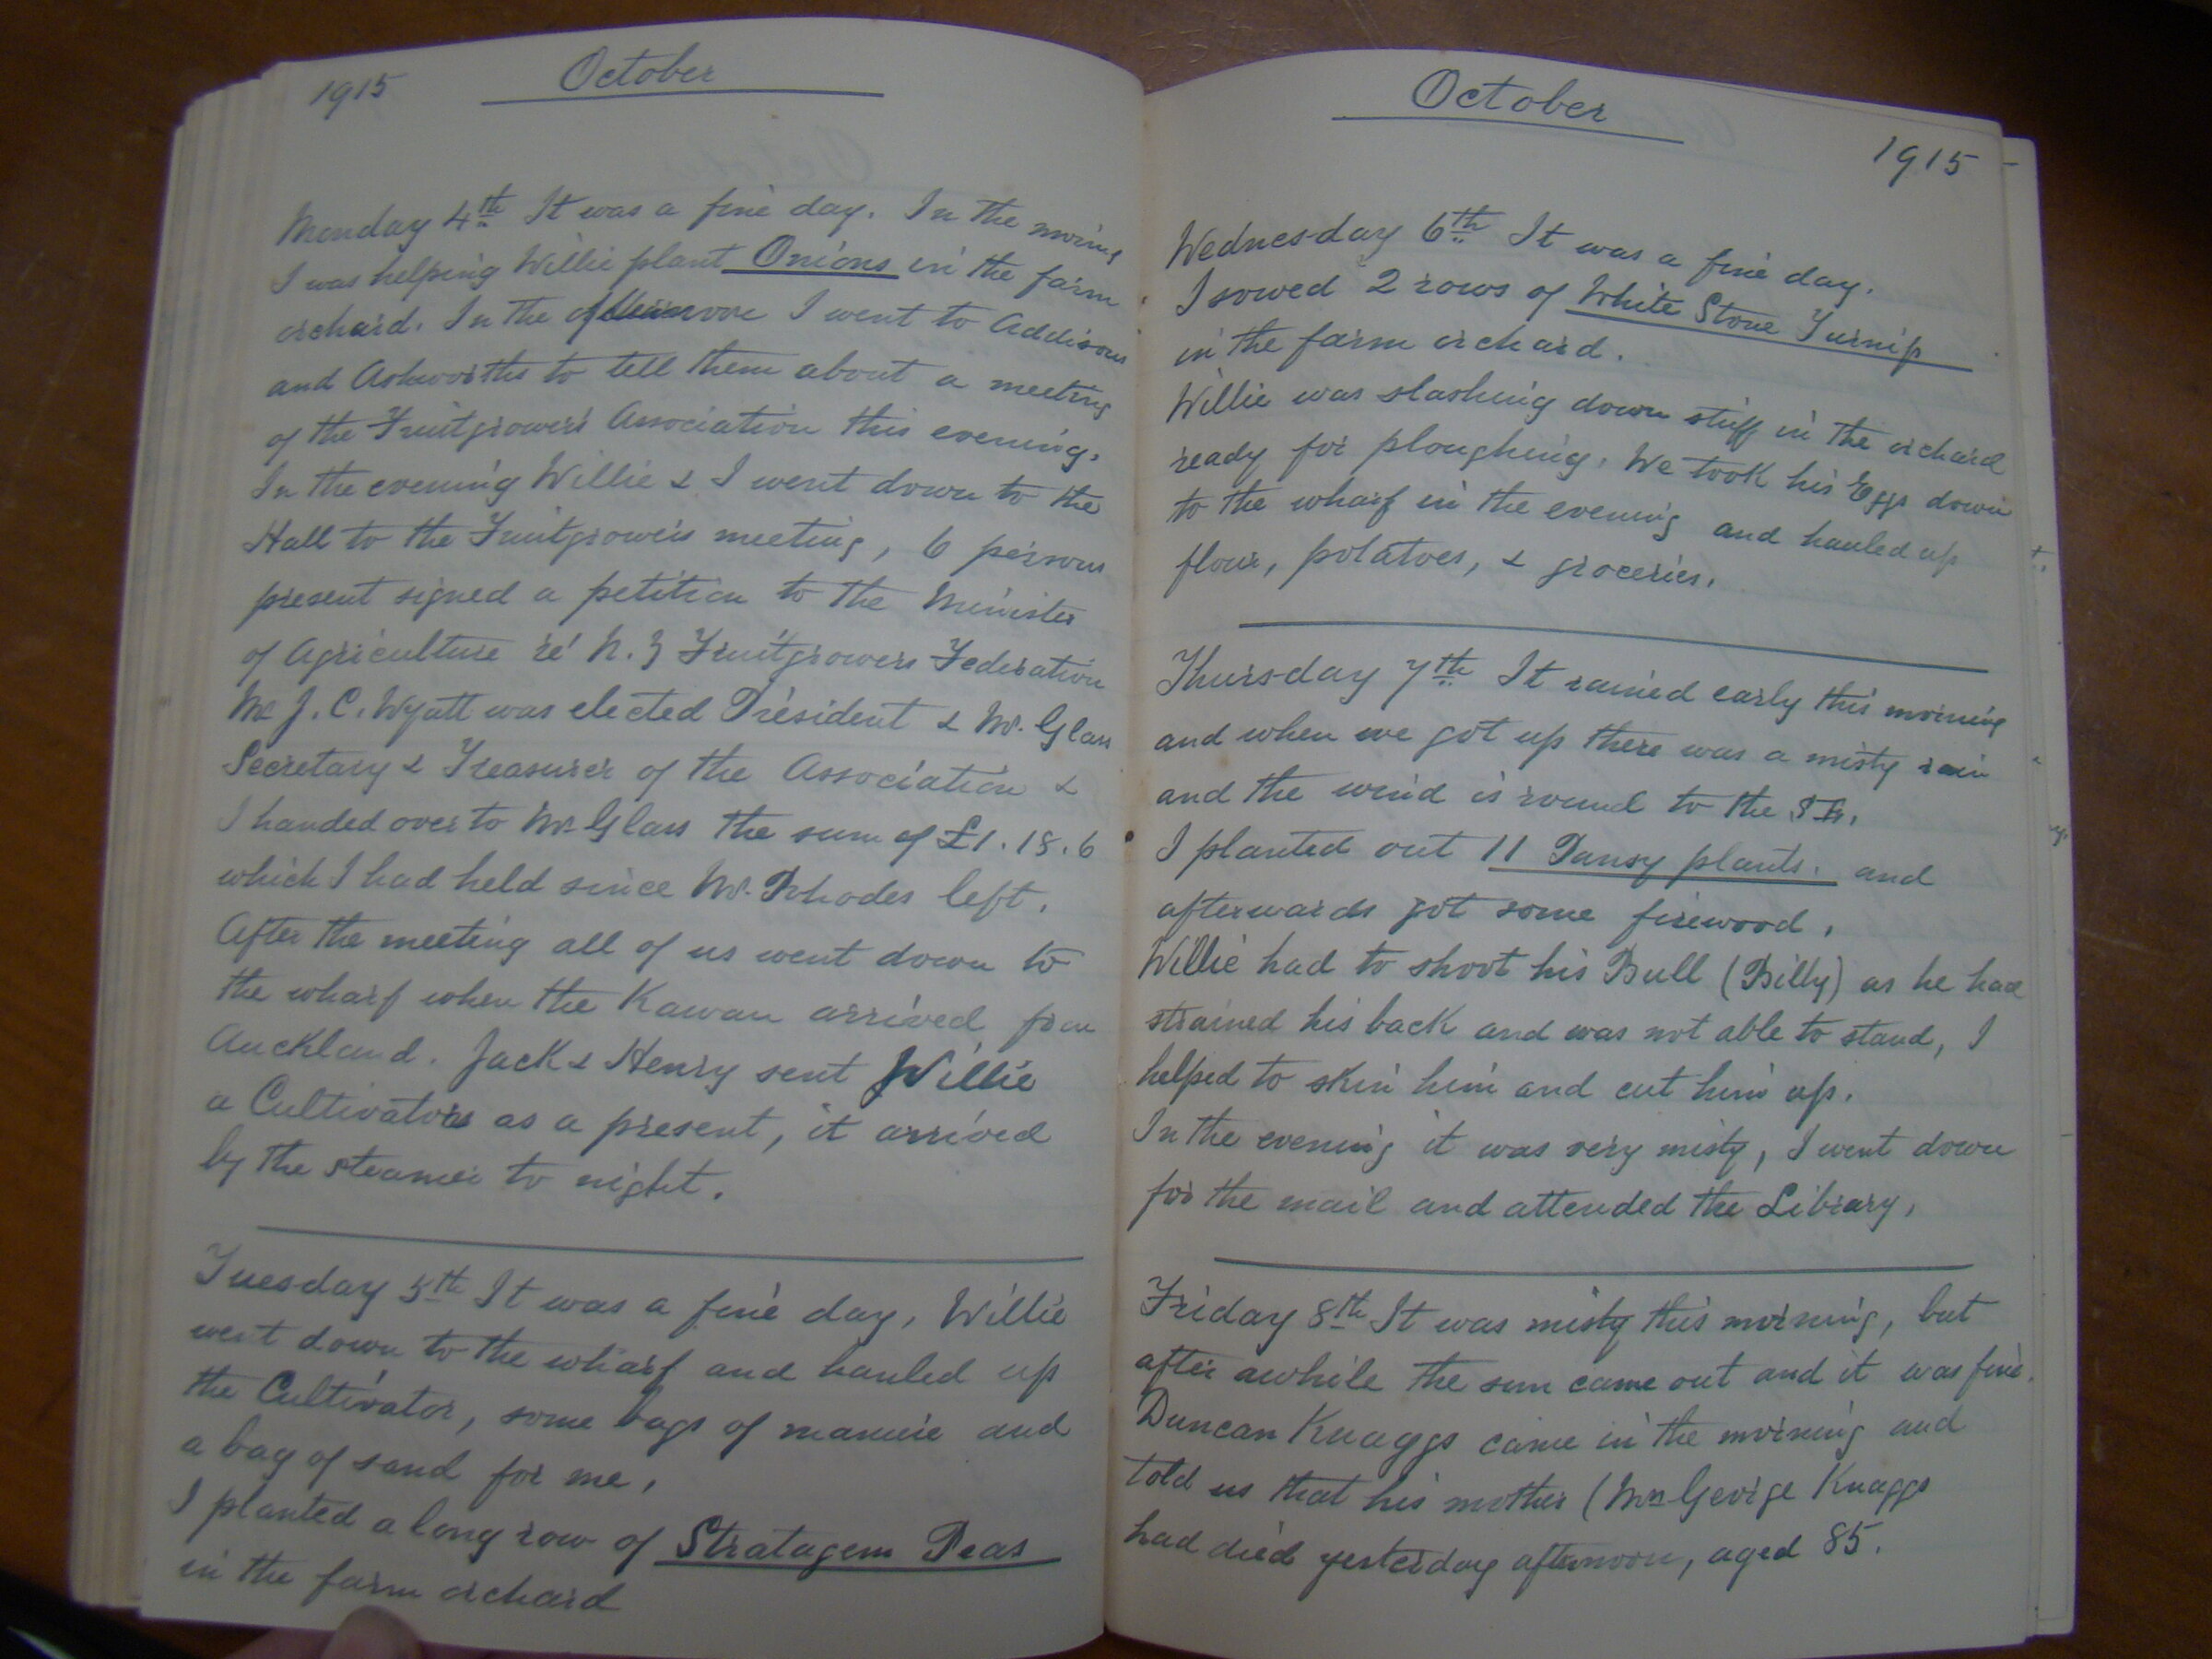 1915 October
Monday 4th It was a fine day. In the moring
I was helping Willie plant Onions in the farm
orchard. In the afternoon I went to Addisons
and Ashworths to tell them about a meeting
of the Fruitgrowers Association this evening.
In the evening Willie & I went down to the
Hall to the Fruitgrowers meeting, 6 persons
present signed a petition to the Minister
of Agriculture re' N. Z Fruitgrowers Federation
Mr J. C. Wyatt was elected President & Mr. Glass
Secretary & Treasurer of the Association &
I handed over to Mr Glass the sum of £1.18.6
which I had held since Mr. Rhodes left.
After the meeting all of us went down to
the wharf when the Kawau arrived from
Auckland. Jack & Henry sent Willie
a Cultivator as a present, it arrived
by the steamer to night.
Tuesday 5th It was a fine day, Willie
went down to the wharf and hauled up
the Cultivator, some bags of manure and
a bag of sand for me,
I planted a long row of Stratagem Peas
in the farm orchard
October
1915
Wednesday 6th It was a fine day.
I sowed 2 rows of White Stone Turnip
in the farm orchard.
Willie was slashing down stuff in the orchard
ready for ploughing. We took his Eggs down
to the wharf in the evening and hauled up
flour, potatoes, & groceries.
Thursday 7th It rained early this morning
and when we got up there was a misty rain
and the wind is round to the
I planted out 11 Pansy plants. and
afterwards got some firewood,
Willie had to shoot his Bull (Billy) as he had
strained his back and was not able to stand, I
helped to skin him and cut him up.
In the evening it was very misty, I went down
for the mail and attended the Library,
Friday 8th It was misty this morning, but
after awhile the sun came out and it was fine.
Duncan Knaggs came in the morning and
told us that his mother (Mrs George Knaggs
had died yesterday afternoon, aged 85.